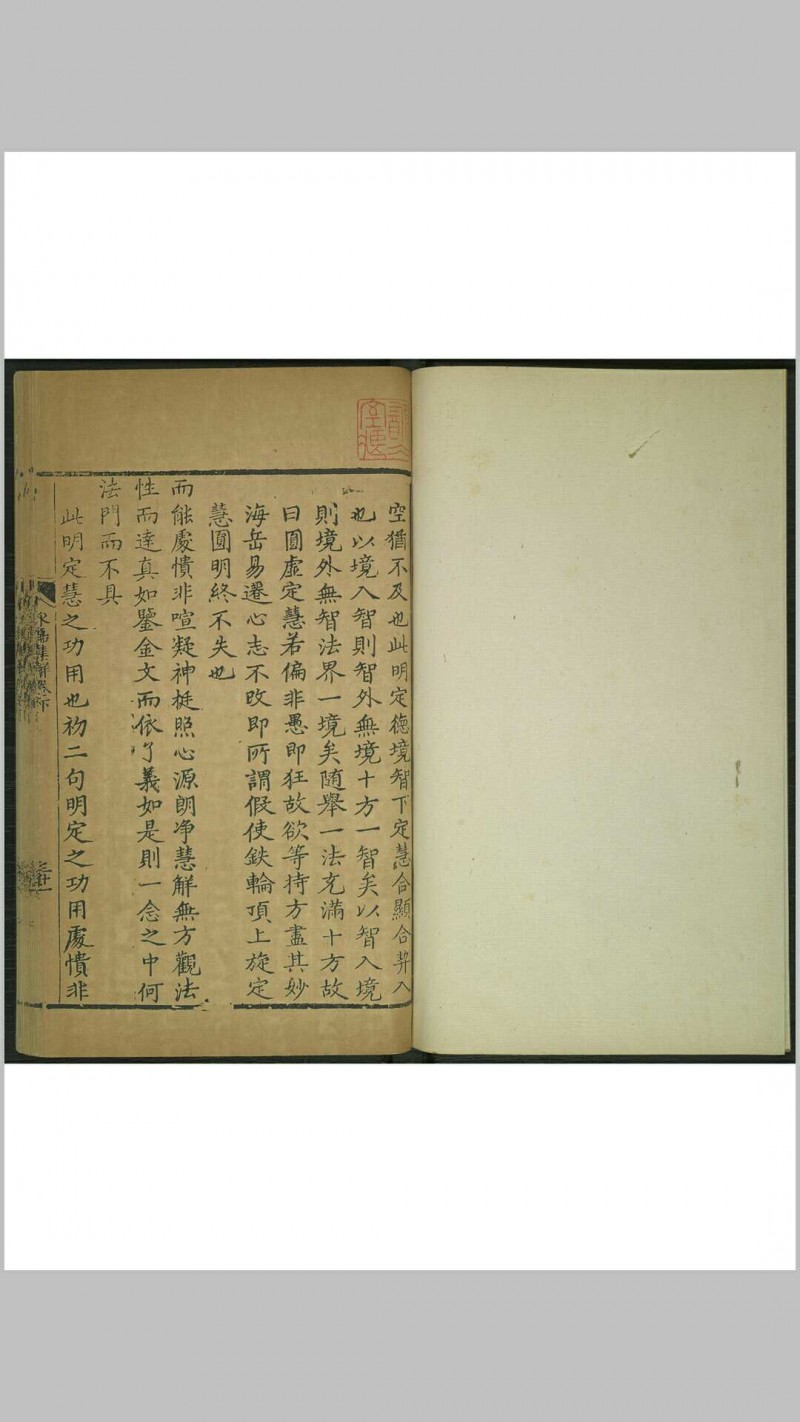 空猶不及也此明定德境智下定慧合顯合契入
也以境入智則智外無境十方一智矣以智入境
則境外無智法界一境矣隨舉一法充滿十方故
曰圓虛定慧若偏非愚即狂故欲等持方盡其妙
海岳易遷心志不改即所謂假使鉄輪頂上旋定
慧圓明終不失也
而能處憒非喧凝神挺照心源朗净慧解無方觀法
性而達真如鑒金文而依了義如是則一念之中何
法門而不具
此明定慧之功用也初二句明定之功用處憒非
永嘉集解卷下